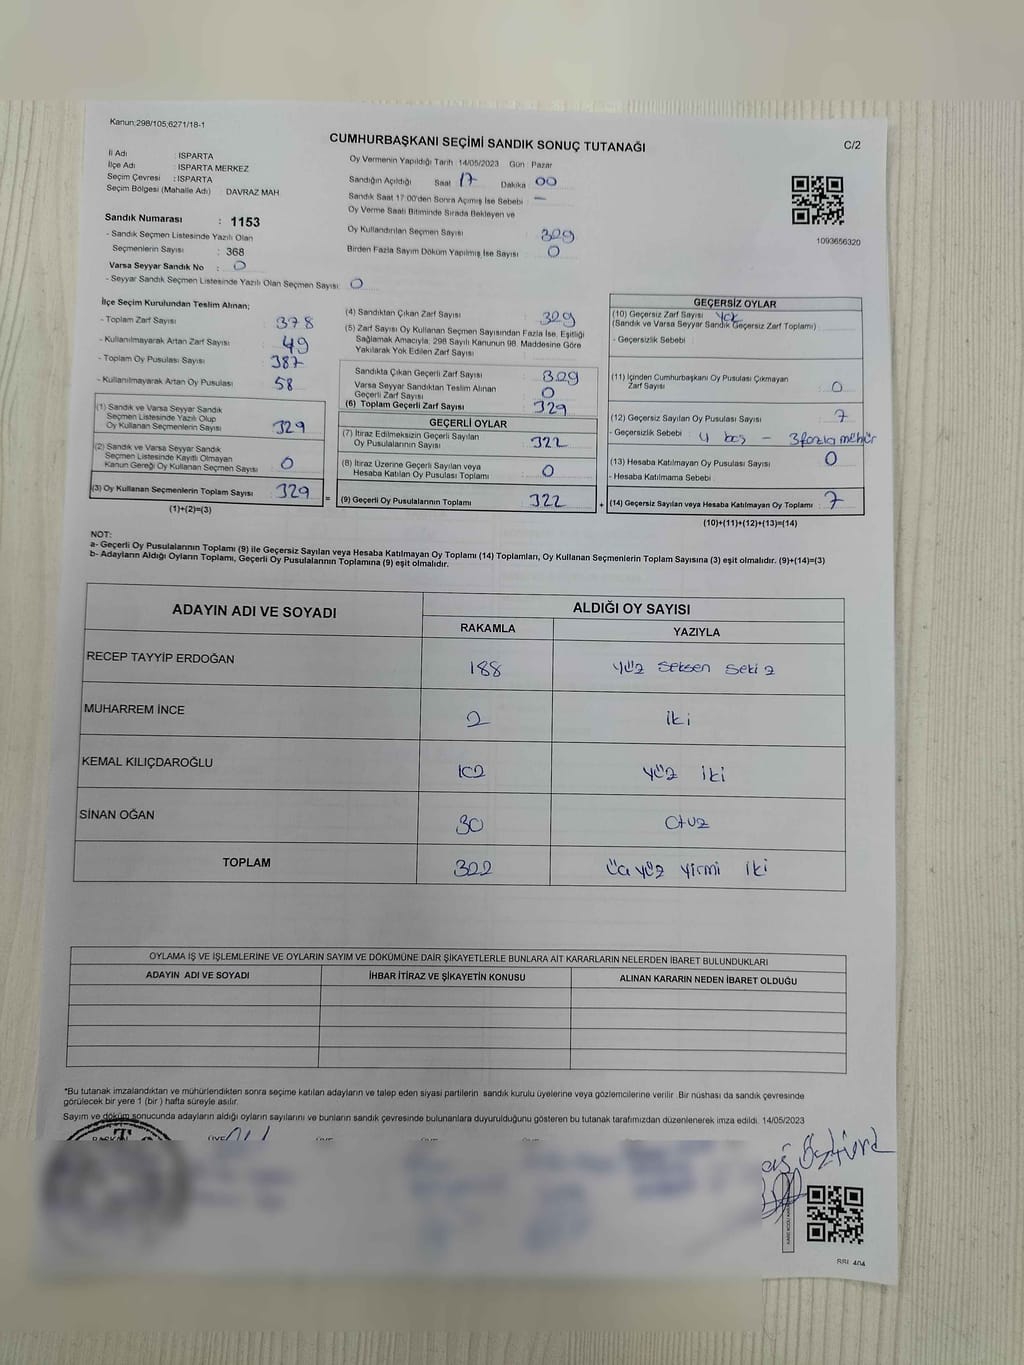 Kanun;298/105;6271/18-1
CUMHURBAŞKANI SEÇİMİ SANDIK SONUÇ TUTANAĞI
C/2
İl Adı : ISPARTA
İlçe Adı : ISPARTA MERKEZ
Seçim Çevresi : ISPARTA
Seçim Bölgesi (Mahalle Adı) : DAVRAZ MAH.
Sandık Numarası : 1153
- Sandık Seçmen Listesinde Yazılı Olan
Seçmenlerin Sayısı : 368
Varsa Seyyar Sandık No : 0
- Seyyar Sandık Seçmen Listesinde Yazılı Olan Seçmen Sayısı : 0
Oy Vermenin Yapıldığı Tarih :14/05/2023 Gün : Pazar
Sandığın Açıldığı Saat 17 Dakika 00
Sandık Saat 17:00'den Sonra Açımış İse Sebebi : —
Oy Verme Saati Bitiminde Sırada Bekleyen ve
Oy Kullandırılan Seçmen Sayısı 329
Birden Fazla Sayım Döküm Yapılmış İse Sayısı 0
1093656320
İlçe Seçim Kurulundan Teslim Alınan;
- Toplam Zarf Sayısı 378
- Kullanılmayarak Artan Zarf Sayısı 49
- Toplam Oy Pusulası Sayısı 387
- Kullanılmayarak Artan Oy Pusulası 58
(1) Sandık ve Varsa Seyyar Sandık
Seçmen Listesinde Yazılı Olup
Oy Kullanan Seçmenlerin Sayısı 329
(2) Sandık ve Varsa Seyyar Sandık
Seçmen Listesinde Kayıtlı Olmayan
Kanun Gereği Oy Kullanan Seçmen Sayısı 0
(3) Oy Kullanan Seçmenlerin Toplam Sayısı 329 =
(1)+(2)=(3)
(4) Sandıktan Çıkan Zarf Sayısı 329
(5) Zarf Sayısı Oy Kullanan Seçmen Sayısından Fazla İse, Eşitliği
Sağlamak Amacıyla, 298 Sayılı Kanunun 98. Maddesine Göre
Yakılarak Yok Edilen Zarf Sayısı
Sandıkta Çıkan Geçerli Zarf Sayısı 329
Varsa Seyyar Sandıktan Teslim Alınan
Geçerli Zarf Sayısı 0
(6) Toplam Geçerli Zarf Sayısı 329
GEÇERLİ OYLAR
(7) İtiraz Edilmeksizin Geçerli Sayılan
Oy Pusulalarının Sayısı 322
(8) İtiraz Üzerine Geçerli Sayılan veya
Hesaba Katılan Oy Pusulası Toplamı 0
(9) Geçerli Oy Pusulalarının Toplamı 322 +
GEÇERSİZ OYLAR
(10) Geçersiz Zarf Sayısı Yok
(Sandık ve Varsa Seyyar Sandık Geçersiz Zarf Toplamı)
- Geçersizlik Sebebi :
(11) İçinden Cumhurbaşkanı Oy Pusulası Çıkmayan
Zarf Sayısı 0
(12) Geçersiz Sayılan Oy Pusulası Sayısı 7
- Geçersizlik Sebebi : 4 boş - 3 fazla mühür
(13) Hesaba Katılmayan Oy Pusulası Sayısı 0
- Hesaba Katılmama Sebebi
(14) Geçersiz Sayılan veya Hesaba Katılmayan Oy Toplamı 7
(10)+(11)+(12)+(13)=(14)
NOT:
a- Geçerli Oy Pusulalarının Toplamı (9) ile Geçersiz Sayılan veya Hesaba Katılmayan Oy Toplamı (14) Toplamları, Oy Kullanan Seçmenlerin Toplam Sayısına (3) eşit olmalıdır. (9)+(14)=(3)
b- Adayların Aldığı Oyların Toplamı, Geçerli Oy Pusulalarının Toplamına (9) eşit olmalıdır.
ADAYIN ADI VE SOYADI
ALDIĞI OY SAYISI
RAKAMLA YAZIYLA
RECEP TAYYİP ERDOĞAN 188 yüz seksen sekiz
MUHARREM İNCE 2 iki
KEMAL KILIÇDAROĞLU 102 yüz iki
SİNAN OĞAN 30 otuz
TOPLAM 322 üç yüz yirmi iki
OYLAMA İŞ VE İŞLEMLERİNE VE OYLARIN SAYIM VE DÖKÜMÜNE DAİR ŞİKAYETLERLE BUNLARA AİT KARARLARIN NELERDEN İBARET BULUNDUKLARI
ADAYIN ADI VE SOYADI İHBAR İTİRAZ VE ŞİKAYETİN KONUSU ALINAN KARARIN NEDEN İBARET OLDUĞU
*Bu tutanak imzalandıktan ve mühürlendikten sonra seçime katılan adayların ve talep eden siyasi partilerin sandık kurulu üyelerine veya gözlemcilerine verilir. Bir nüshası da sandık çevresinde
görülecek bir yere 1 (bir ) hafta süreyle asılır.
Sayım ve döküm sonucunda adayların aldığı oyların sayılarını ve bunların sandık çevresinde bulunanlara duyurulduğunu gösteren bu tutanak tarafımızdan düzenlenerek imza edildi. 14/05/2023
BAŞKAN ÜYE ÜYE ÜYE ÜYE
Öztürk